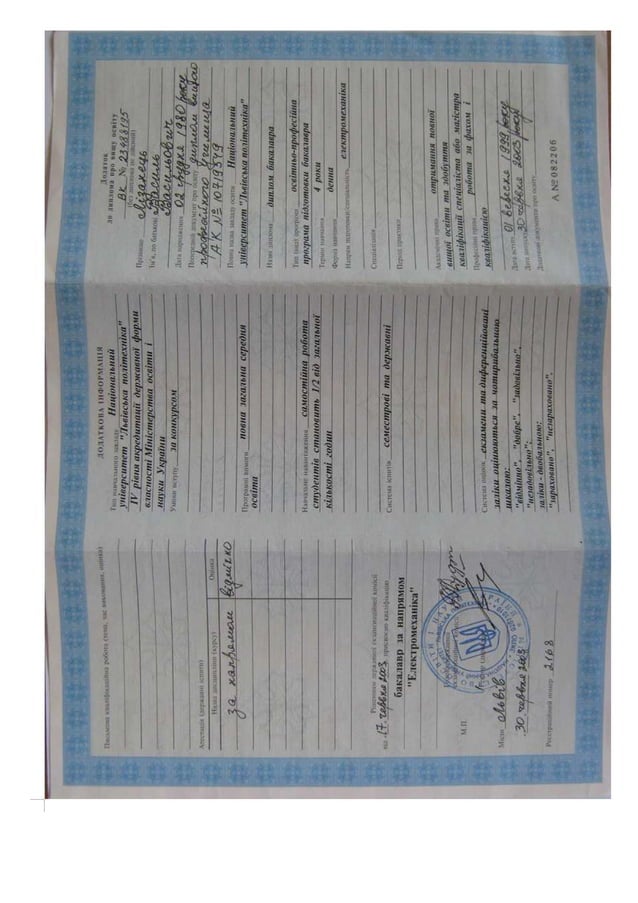 Письмова кваліфікаційна робота (тема, час виконання, оцінка)
Атестація (державні іспити)
Назва дисципліни (курсу)
Оцінка
за напрямом
відмінно
Рішенням державної екзаменаційної комісії
від 17 червня 2003 присвоєно кваліфікацію
бакалавр за напрямом
"Електромеханіка"
М.П.
Місто Львів
30 червня 2003
Реєстраційний номер 2168
ДОДАТКОВА ІНФОРМАЦІЯ
Тип навчального закладу Національний
університет "Львівська політехніка"
IV рівня акредитації державної форми
власності Міністерства освіти і
науки України
Умови вступу за конкурсом
Програмні вимоги повна загальна середня
освіта
Навчальне навантаження самостійна робота
студентів становить 1/2 від загальної
кількості годин
Система іспитів семестрові та державні
Система оцінок екзамени та диференційовані
заліки оцінюються за чотирибальною
шкалою:
"відмінно", "добре", "задовільно",
"незадовільно";
заліки - двобальною:
"зараховано", "незараховано".
Додаток
до диплома про вищу освіту
ВК № 23488175
(без диплома не дійсний)
Прізвище
Ім'я, по батькові
Васильович
Дата народження 02 грудня 1980 року
Попередній документ про освіту диплом
професійного училища
АК № 10719549
Повна назва закладу освіти Національний
університет "Львівська політехніка"
Назва диплома диплом бакалавра
Тип (вид) програми освітньо-професійна
програма підготовки бакалавра
Термін навчання 4 роки
Форма навчання денна
Напрям підготовки/спеціальність електромеханіка
Спеціалізація
Період практики
Академічні права отримання повної
вищої освіти та здобуття
кваліфікації спеціаліста або магістра
Професійні права робота за фахом і
кваліфікацією
Дата вступу 01 вересня 1999 року
Дата 30 червня 2003 року
Додаткові документи про освіту
А № 082206